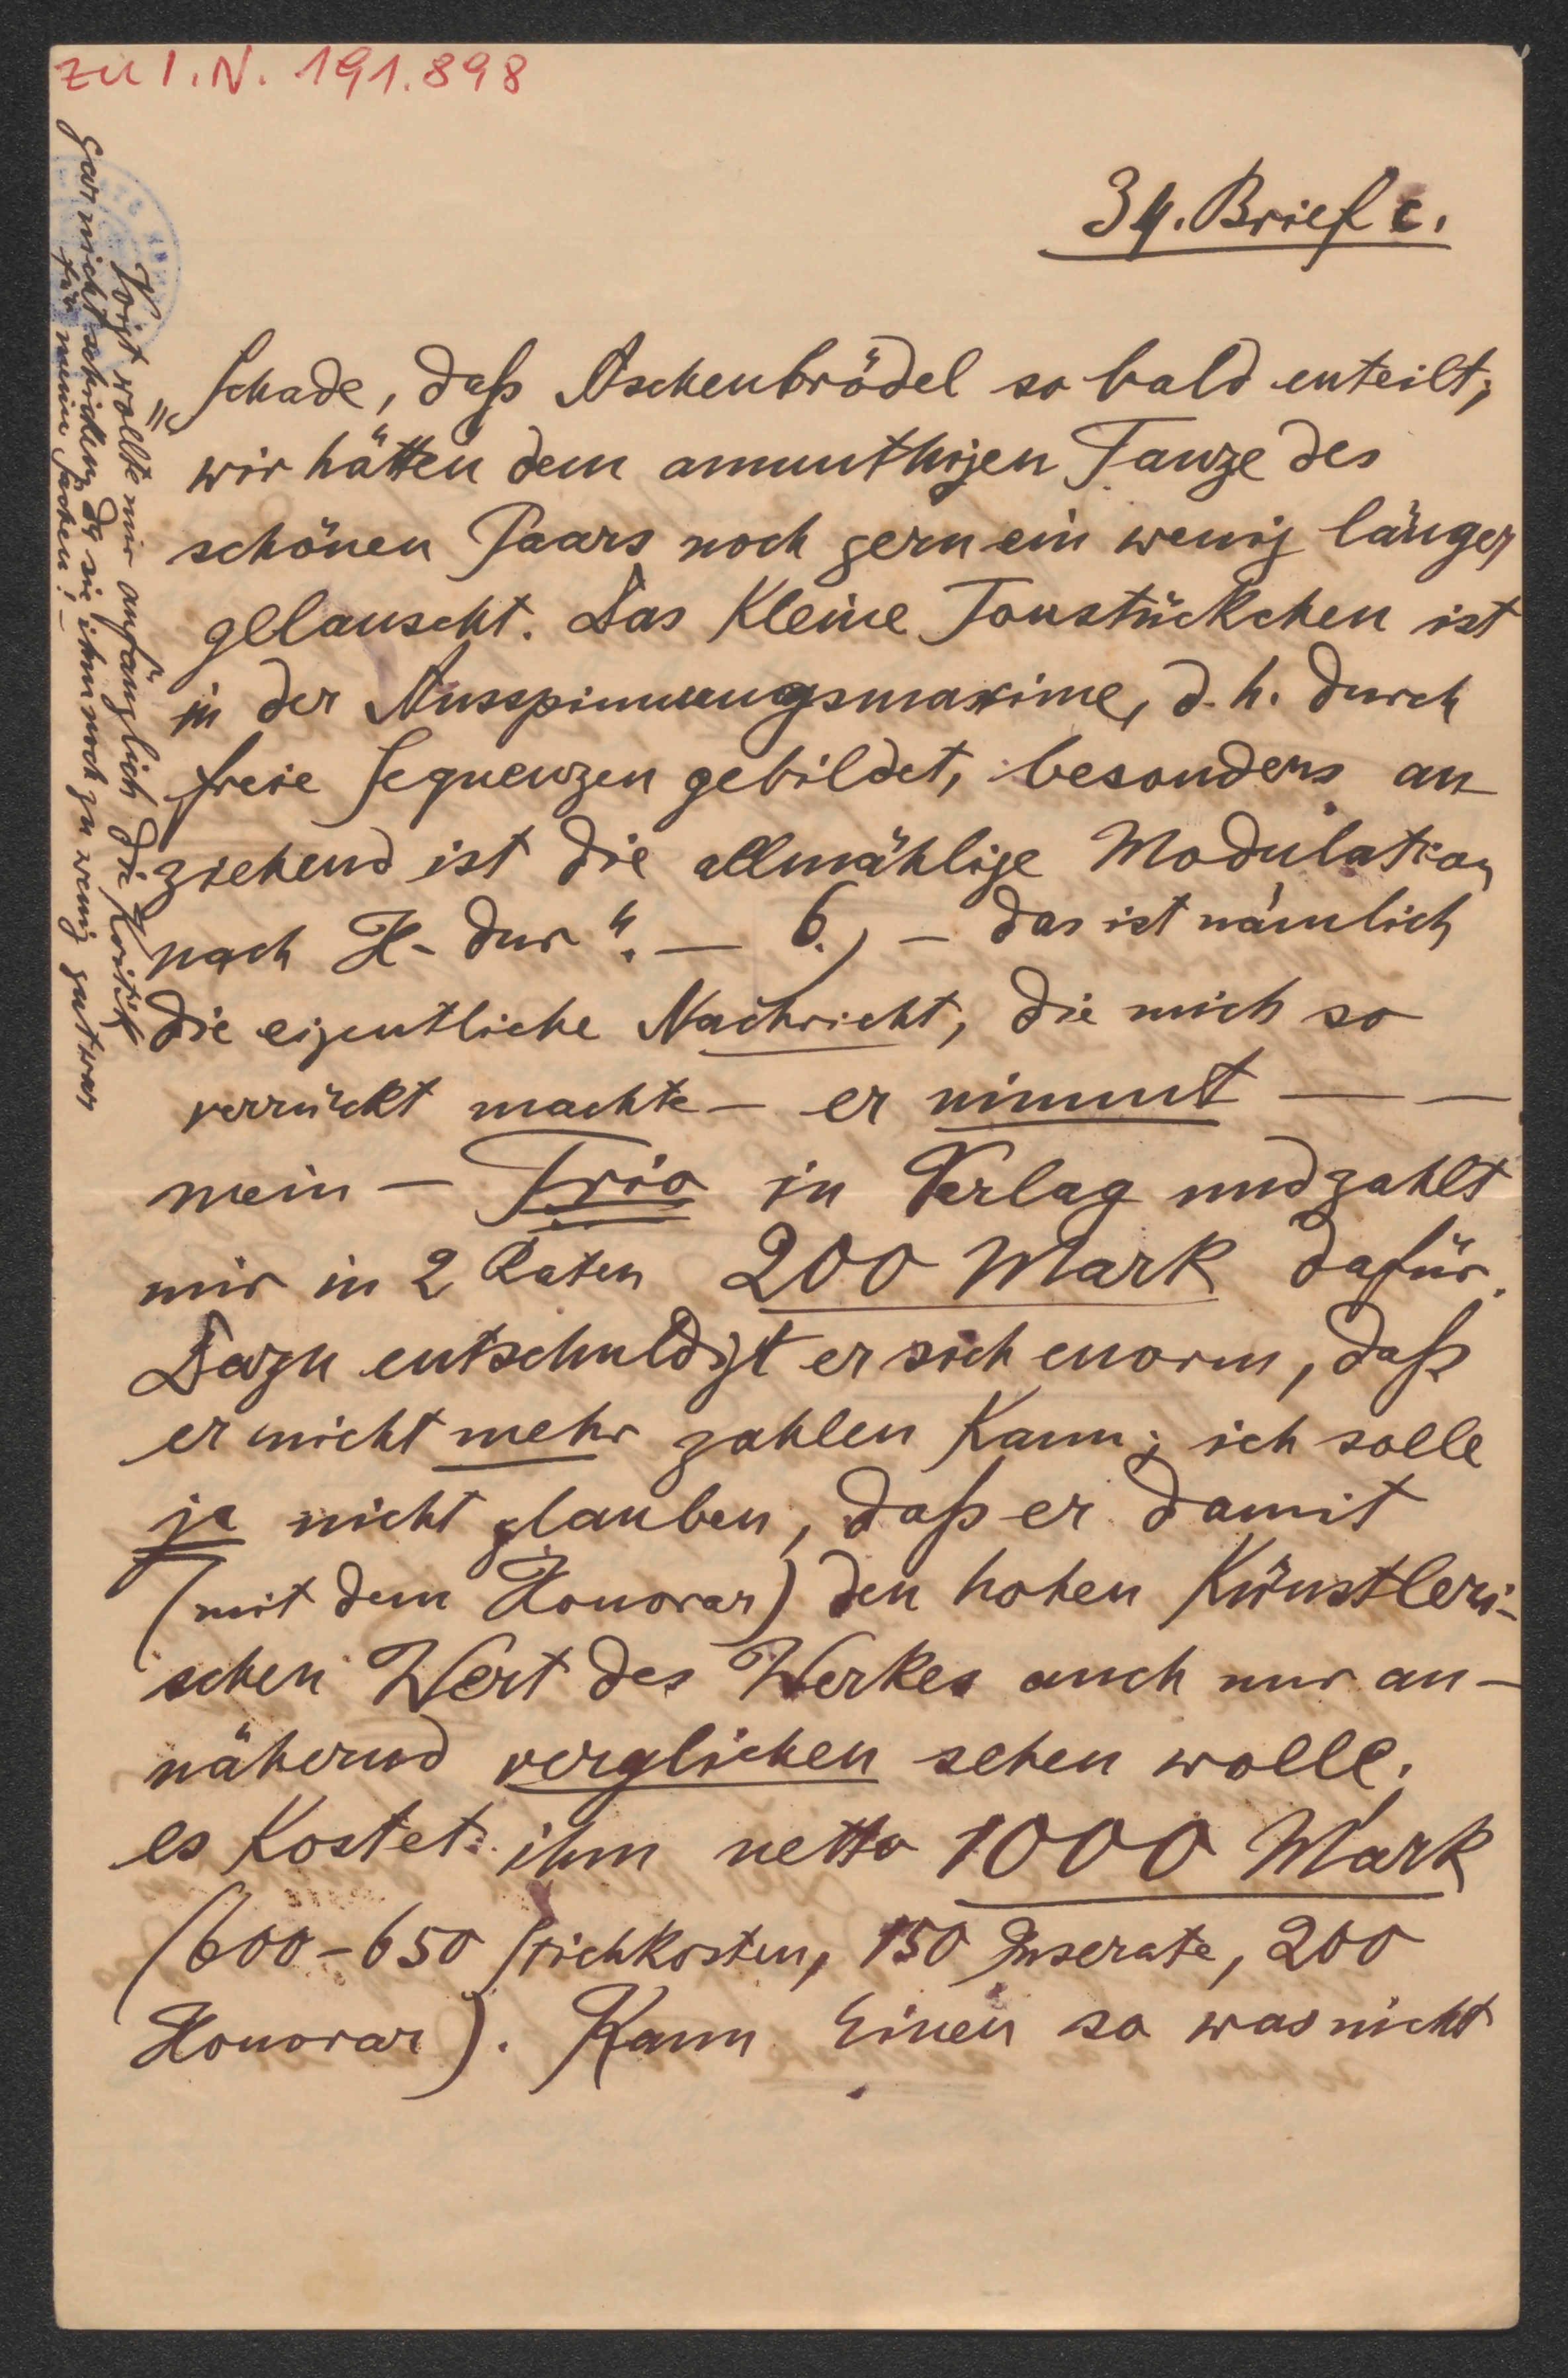 zu I.N. 191.898
34. Brief c.
Schade, daß Aschenbrödel so bald enteilt,
wir hätten dem anmuthigen Tanze des
schönen Paars noch gern ein wenig länger
gelauscht. Das kleine Tonstückchen ist
in der Ausspinnungsmaxime, d. h. durch
freie Sequenzen gebildet, besonders an-
ziehend ist die allmählige Modulation
nach H-dur". — 6.) — das ist nämlich
die eigentliche Nachricht, die mich so
verrückt machte — er nimmt — —
mein — Trio in Verlag und zahlt
mir in 2 Raten 200 Mark dafür.
Dazu entschuldigt er sich enorm, daß
er nicht mehr zahlen kann; ich solle
ja nicht glauben, daß er damit
(mit dem Honorar) den hohen künstleri-
schen Wert des Werkes auch nur an-
nähernd verglichen sehen wolle.
es kostet ihm netto 1000 Mark
(600-650 Stichkosten, 150 Inserate, 200
Honorar). Kann Einen so was nicht
Voigt wollte mir anfänglich die Kritik
gar nicht schicken, da sie ihm noch zu wenig gut war
für meine Sachen! —